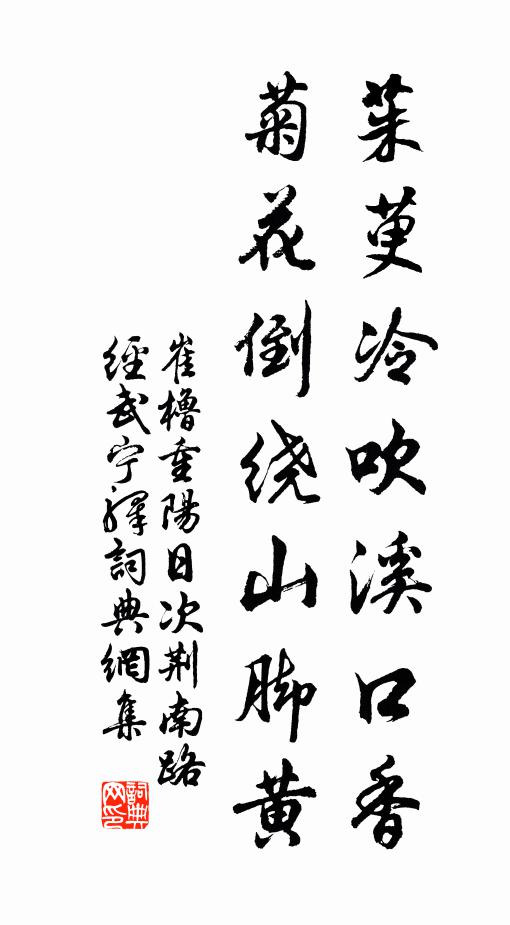 茱萸冷吹溪口香
菊花倒绕山脚黄
崔櫓重陽日次荆南路
經武宁驛詞典網集
詞典网印